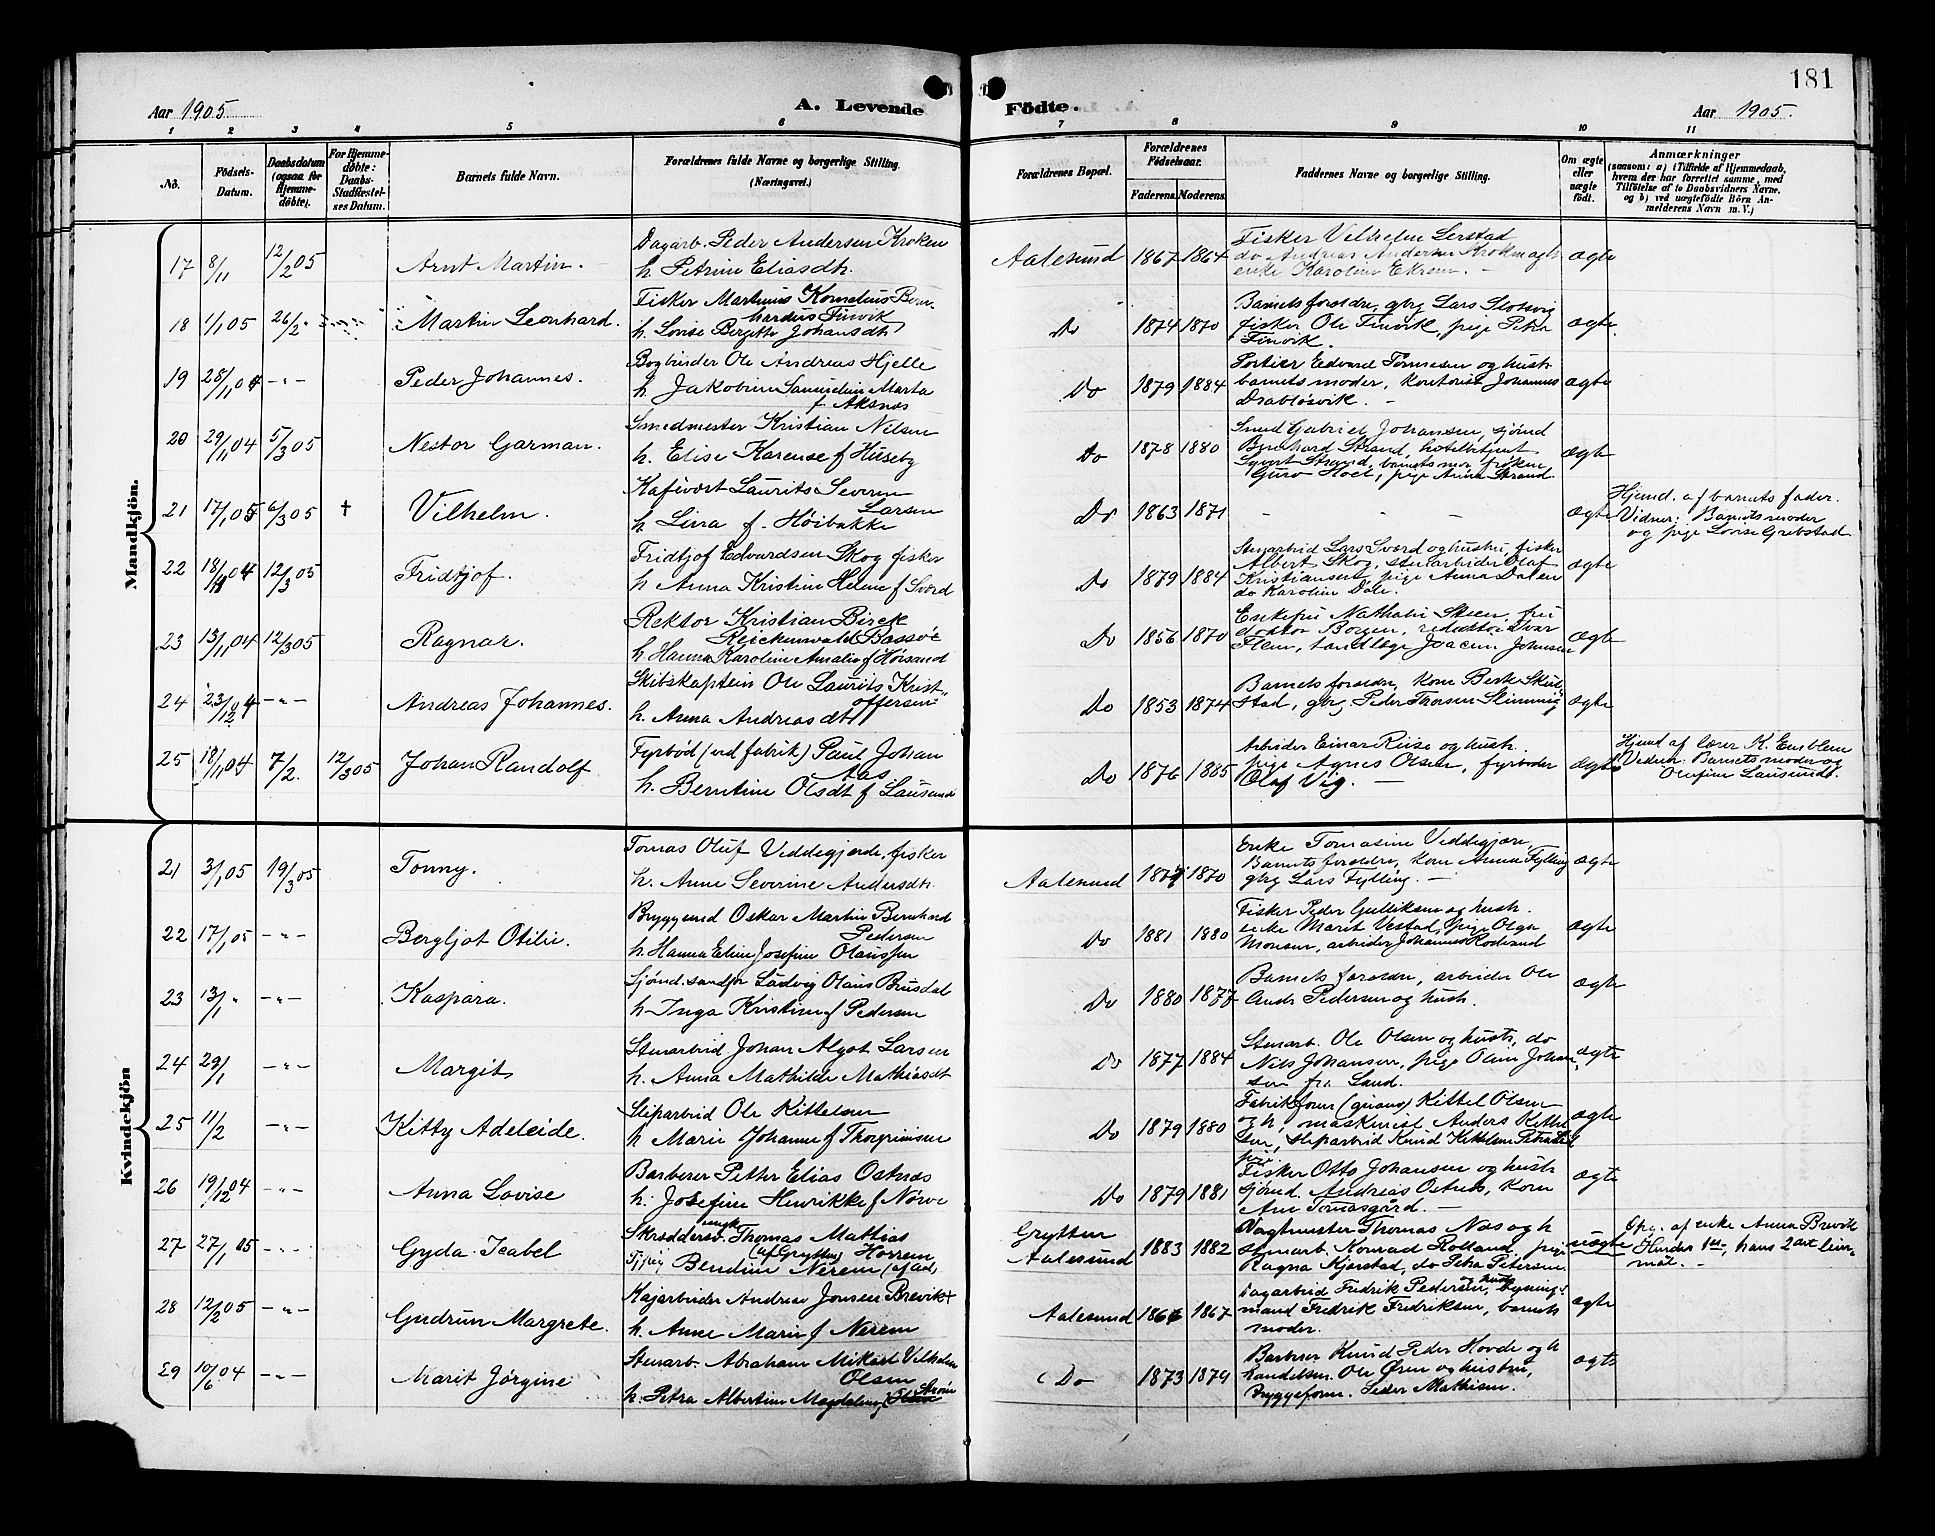 181
Aar 1905 A. Levende Födte. Aar 1905.
1 2 3 4 5 6 7 8 9 10 11
No. Födsels-Datum. Daabsdatum (ogsaa for Hjemme-döbte). For Hjemme-döbte: Daabs-Stadfæstel-ses Datum. Barnets fulde Navn. Forældrenes fulde Navne og borgerlige Stilling. (Næringsvei.) Forældrenes Bopæl. Forældrenes Födselsaar. Faderens. Moderens. Faddernes Navne og borgerlige Stilling. Om ægte eller uægte födt. Anmærkninger (saasom: a) i Tilfælde af Hjemmedaab, hvem der har forrettet samme, med Tilföielse af to Daabsvidners Navne. og b) ved uægtefödte Börn An-melderens Navn m. V.)
Mandkjön.
17 8/11 12/2 05 Arnt Martin. Dagarb. Peder Andersen Kroken
h. Petrine Eliasdt. Aalesund 1867 1864 Fisker Vilhelm Lerstad
do Andreas Andersen Kroken og h
enke Karoline Ekrem. - ægte
18 1/1 05 26/2 Martin Leonhard. Fisker Martinus Kornelius Bern-
hardus Finvik
h. Lovise Bergitte Johansdt Do 1874 1870 Barnets foreldre, gbrg Lars Slotsvig
fisker Ole Finvik, pige Petra
Finvik. ægte
19 28/11 04 -"- Peder Johannes. Bogbinder Ole Andreas Hjelle
h. Jakobine Samueline Marta
f. Aksnes Do 1879 1884 Portier Edvard Tønnesen og hustr
barnets moder, kontorist Johannes
Drabløsvik. - ægte
20 29/11 04 5/3 05 Nestor Garman. Smedmester Kristian Nilsen
h. Elise Karense f Huseby Do 1878 1880 Smed Gabriel Johansen, sjømd
Bernhard Strand, hotelbetjent
Sivert Strand, barnets mor, frøken
Guro Hoel, pige Anna Strand ægte
21 17/1 05 6/3 05 † Vilhelm. Kafévært Laurits Severin
Larsen
h. Lina f. Høibakke Do 1863 1871 - - - ægte Hjemd. af barnets fader.
Vidner: Barnets moder
og pige Lovise Grebstad
22 18/11 04 12/3 05 Fridtjof. Fridtjof Edvardsen Skog fisker
h. Anna Kristine Helene f Sværd Do 1879 1884 Stenarbeid Lars Sværd og hustru, fisker
Albert Skog, stenarbeider Olaf
Kristiansen, pige Anna Dalen
do Karoline Dale. ægte
23 13/11 04 12/3 05 Ragnar. Rektor Kristian Birch
Reichenwald Bassøe
h. Hanna Karoline Amalie f Hörsand Do 1856 1870 Enkefru Nathalie Steen, fru
doktor Borgen, redaktør Ivar
Flem, tandlæge Joacim Johnsen ægte
24 23/12 04 -"- Andreas Johannes. Skibskaptein Ole Laurits Krist-
offersen
h. Anna Andreasdt Do 1853 1874 Barnets foreldre, kone Berte Skul-
stad, gbrg Peder Thorsen Slinning ægte
25 18/11 04 7/2. 12/3 05 Johan Randolf Fyrbød (ved fabrik) Paul Johan
Aas
h. Berntine Olsdt f Lausund Do 1876 1885 Arbeider Einar Riise og hustr.
pige Agnes Olsen, fyrbøder
Olaf Vig. - ægte Hjemd af lærer K. Emblem
Vidner: Barnets moder og
Olufine Lausund.
Kvindekjön
21 3/1 05 19/3 05 Tonny. Tomas Oluf Veddegjerde, fisker
h. Anne Severine Andersdt. Aalesund 1871 1870 Enke Tomasine Veddegjerde,
Barnets foreldre, kone Anna Fylling
gbrg Lars Fylling. - ægte
22 17/1 05 -"- Bergljot Otilie. Bryggemd Oskar Martin Bernhard
Pedersen
h. Hanna Eline Josefine Olaussen Do 1881 1880 Fisker Peder Gulliksen og hustr.
enke Marit Vestad, pige Olga
Monsen, arbeider Johannes Roderud ægte
23 13/1 " -"- Kaspara. Sjømd. Ludvig Olaus Brusdal
h. Inga Kristine f Pedersen Do 1880 1877 Barnets foreldre, arbeider Ole
Andr Pedersen og hustr. ægte
24 29/1 -"- Margit Stenarbeid Johan Algot Larsen
h. Anna Mathilde Mathiasdt Do 1877 1884 Stenarb. Ole Olsen og hustr, do
Nils Johansen, pige Oline Johan-
sen fra Sand. ægte
25 11/2 -"- Kitty Adeleide. Sliparbeid Ole Kittelsen
h Marie Johanne f Thorgrimsen Do 1879 1880 Fabrikform (guano) Kittel Olsen
og h, maskinist Anders Kittel-
sen, sliparbeid Knud Kittelsen
pige. ægte
26 19/12 04 -"- Anna Lovise Barberer Petter Elias Ostnes
h. Josefine Henrikke f Nørve Do 1879 1881 Fisker Otto Johansen og hustr
sjømd. Andreas Ostnes, kone
Ane Tomasgård. - ægte
27 27/1 05 -"- Gyda Isabel Skræddersv. ungk Thomas Mathias
(af Grytten) Horrem
Tj.pige Bendine Nerem (af Aal) Grytten
Aalesund 1883 1882 Vagtmester Thomas Næs og h
stenarb. Konrad Rolland, pige
Ragna Kjerstad, do Petra Petersen. uægte Opg. af enke Anna Brevik
Hendes 1ste, hans 2det leier-
mål. -
28 12/2 05 -"- Gudrun Margrete. Kajarbeider Andreas Jonsen Brevik †
h. Anne Marie f Nerem Aalesund 1866 1867 Dagarbeid Fredrik Pedersen og hustr, bygnings-
mand Fredrik Fredriksen, barnets
moder. ægte
29 10/6 04 -"- Marit Jørgine Stenarb. Abraham Mikael Vilhelm
Olsen
h. Petra Albertine Magdalene Strøm Do 1873 1879 Barberer Knud Peder Hovde og h
handelsm. Ole Øren og hustru,
Bryggeform. Peder Mathisen. ægte